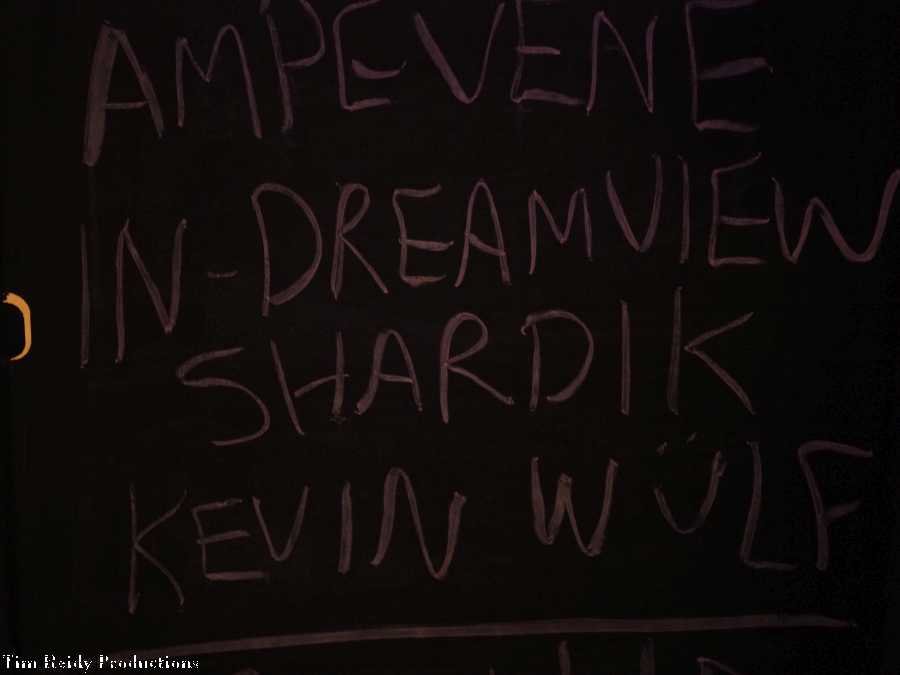 AMPEVENE
IN-DREAMVIEW
SHARDIK
KEVIN WÜLF
Tim Reidy Productions